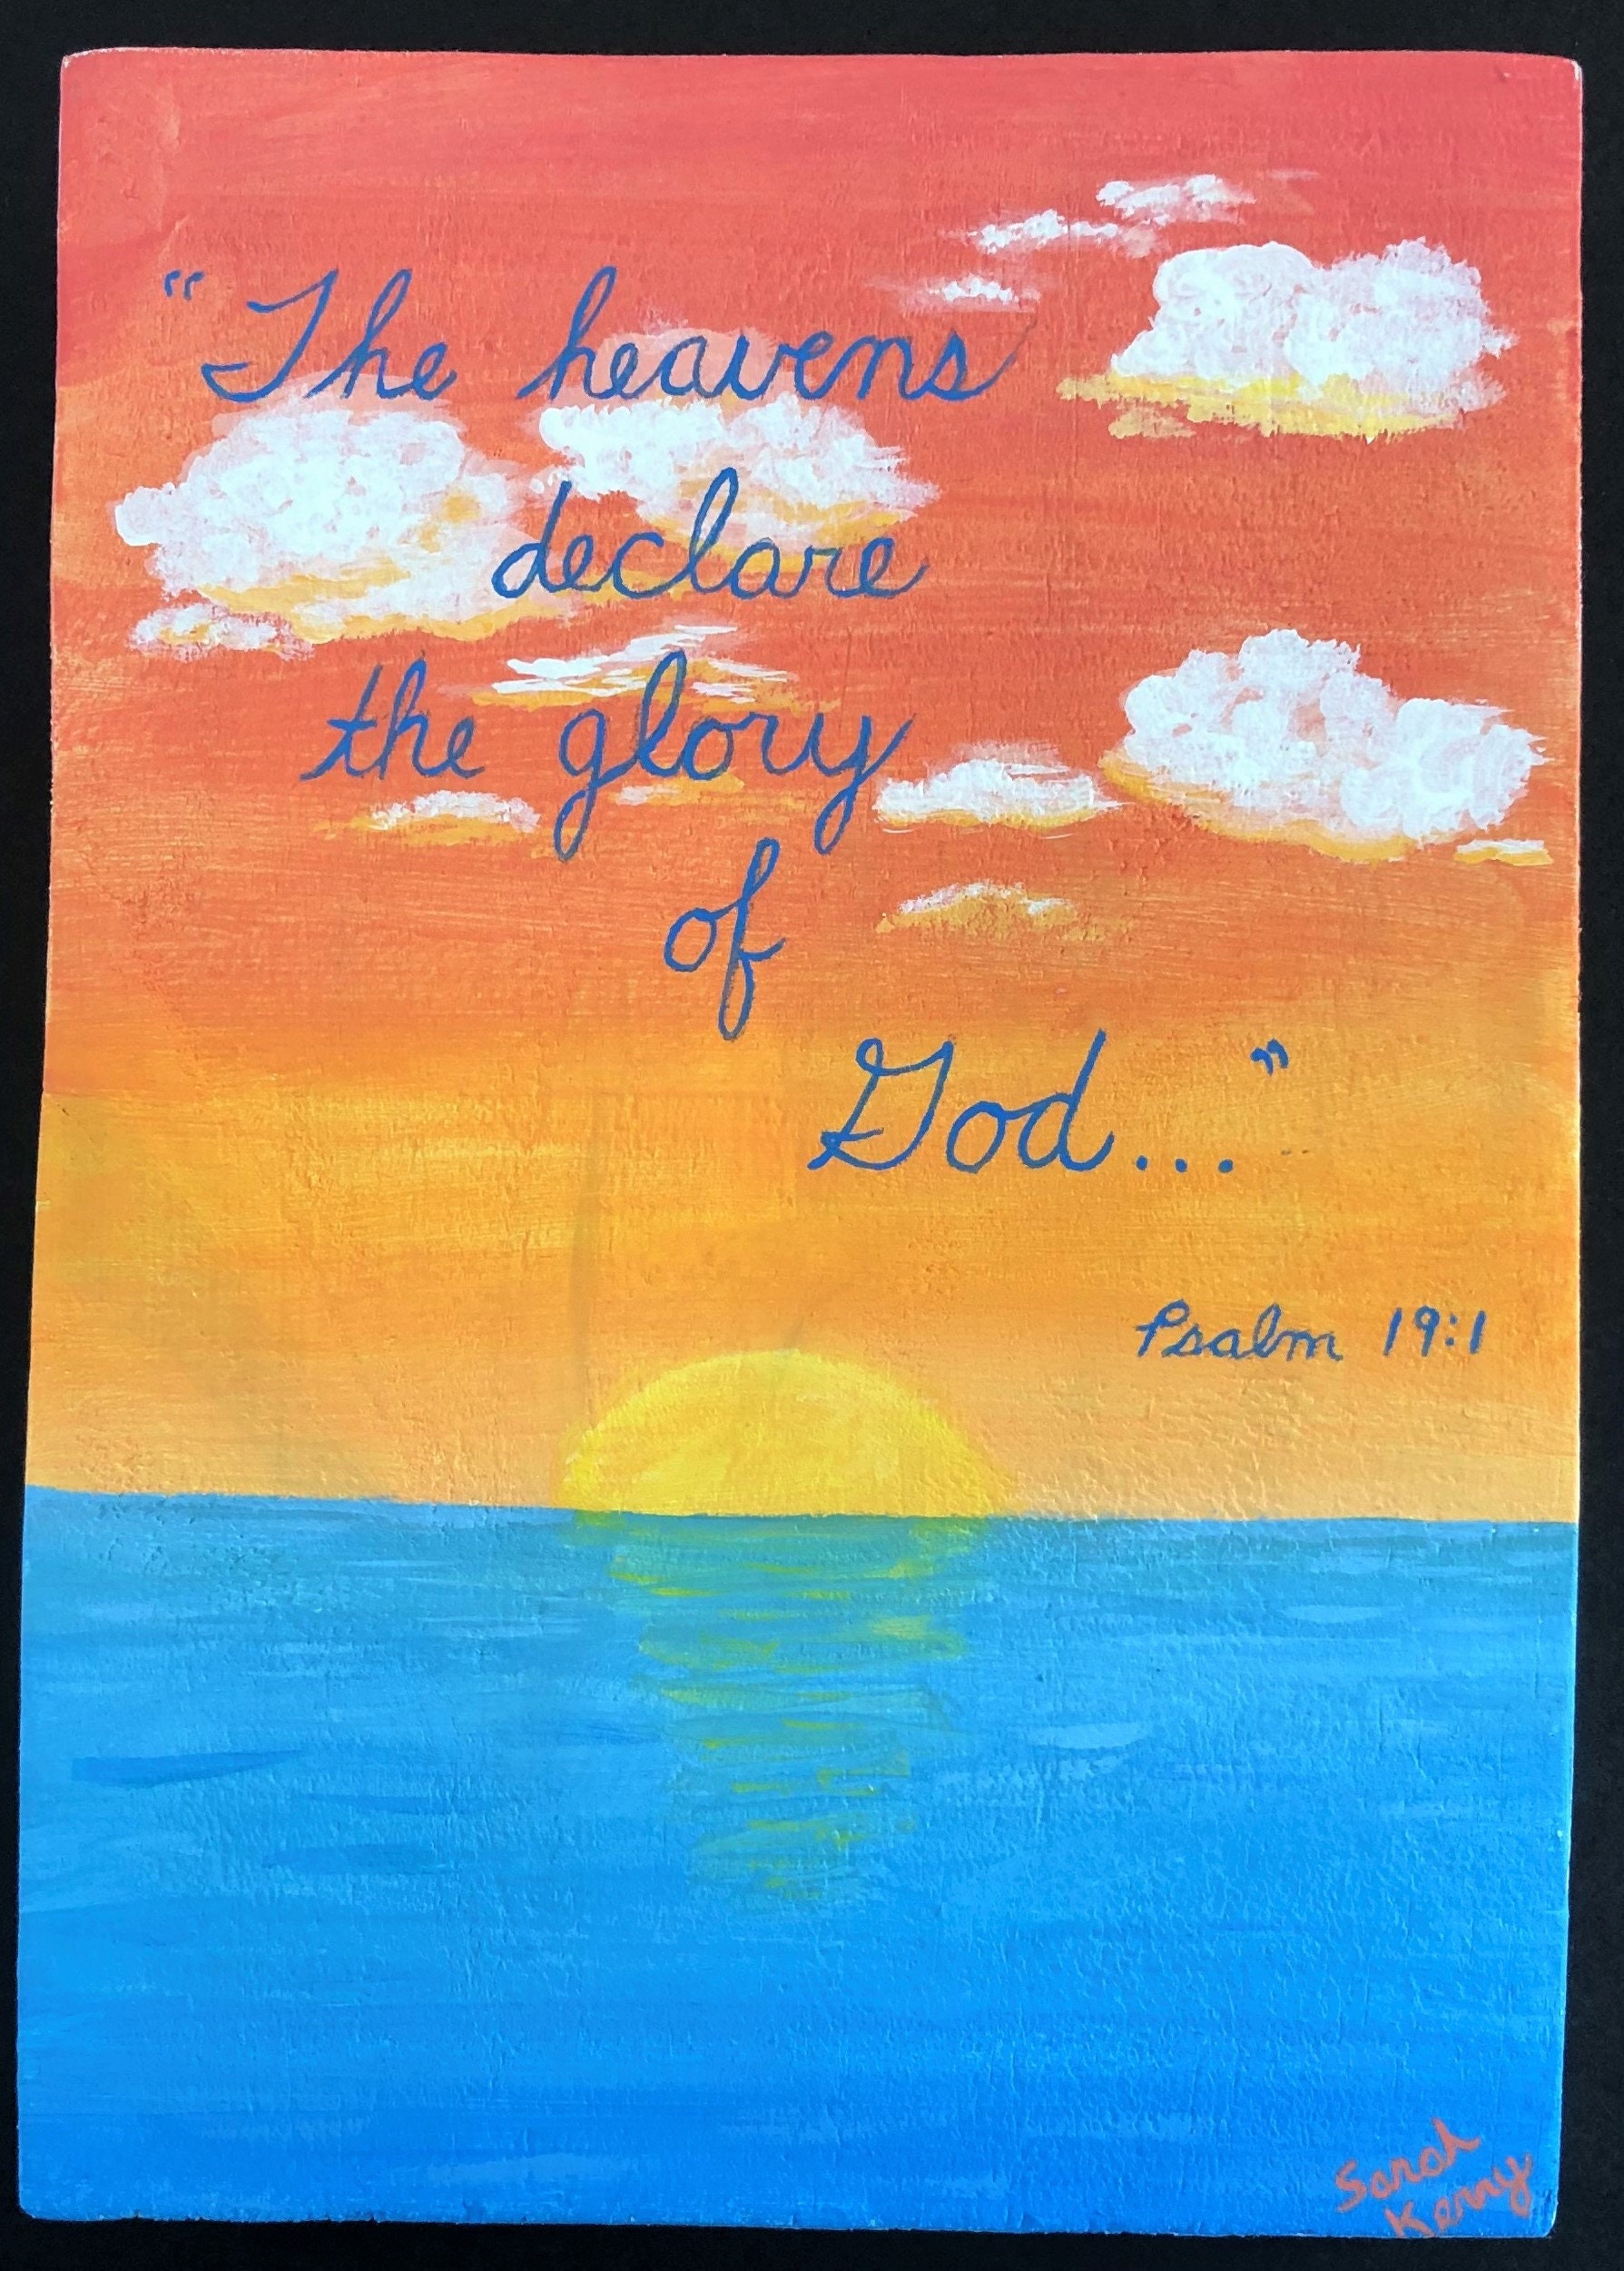 "The heavens
declare
the glory
of
God..."
Psalm 19:1
Sarah
Kerry